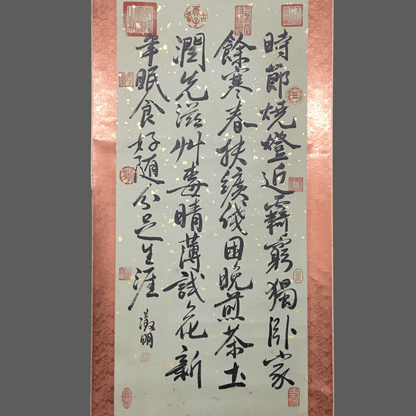 時節燒燈近霽窮獨卧家
餘寒春扶纊伐困晚煎茶土
潤先滋艸毒晴薄試花新
年眠食好隨分足生涯
徵明